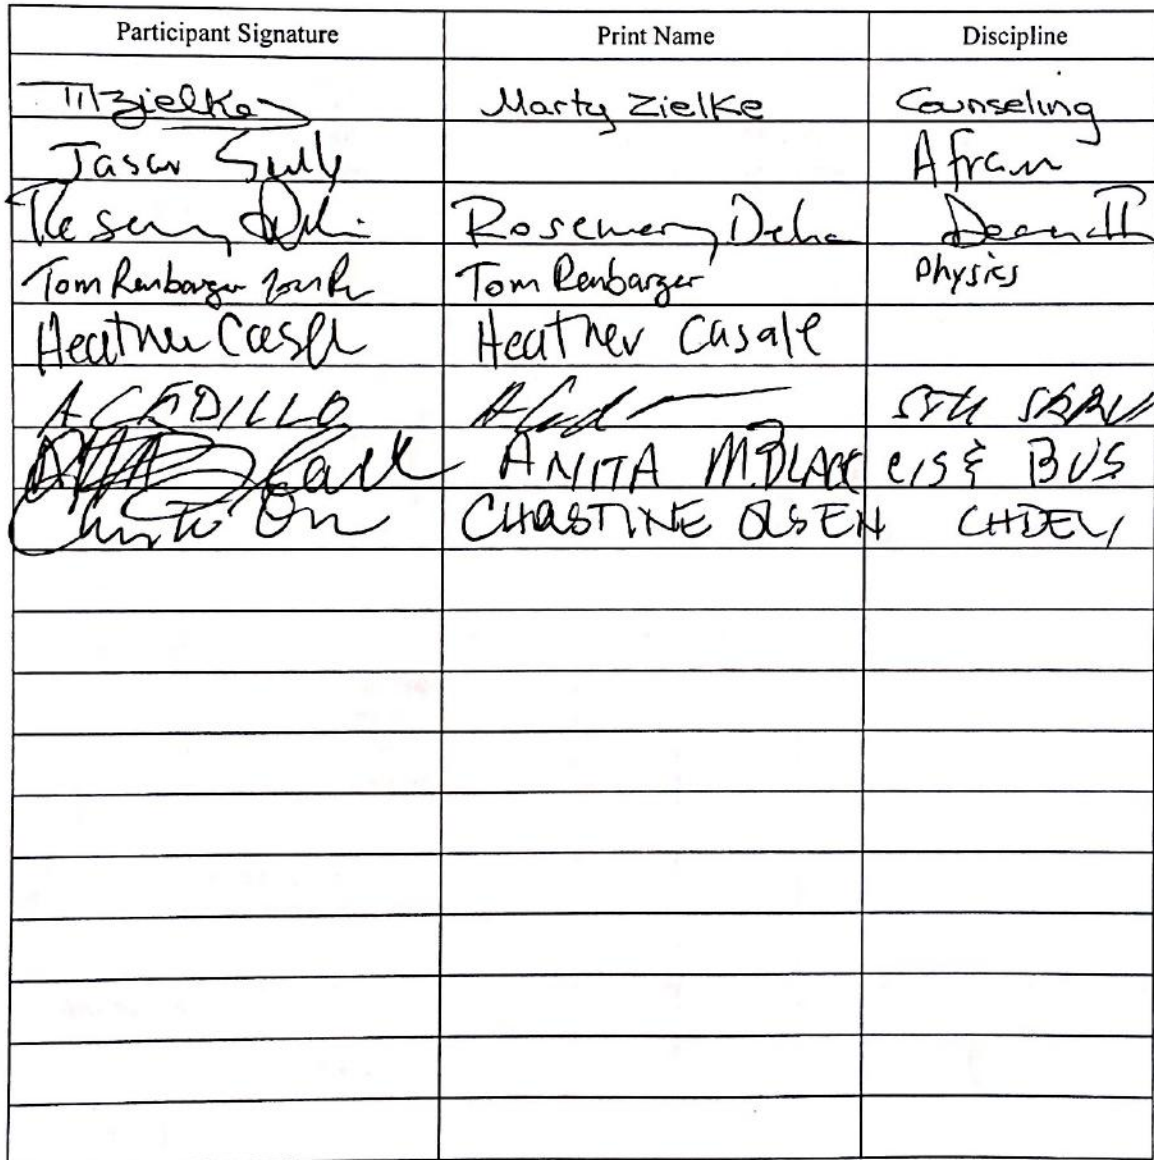 Participant Signature Print Name Discipline
MZielke Marty Zielke Counseling
Jason Afram
Rosemary Rosemary Dean II
Tom Renbarger Tom Renbarger Physics
Heather Casale Heather Casale
A CEDILLO
Black ANITA M. BLACK CIS & BUS
CHRISTINE OLSEN CHDEV